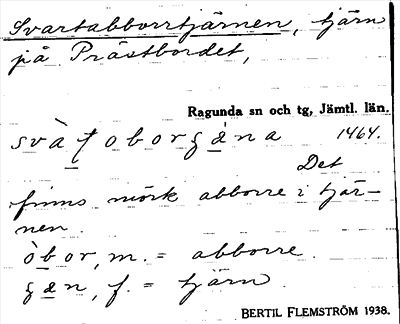 Svartabborrtjärnen, tjärn
på Prästbordet,
Ragunda sn och tg, Jämtl. län.
1464.
Det
finns mörk abborre i tjär-
nen.
òbor, m. = abborre.
f. = tjärn
BERTIL FLEMSTRÖM 1938.